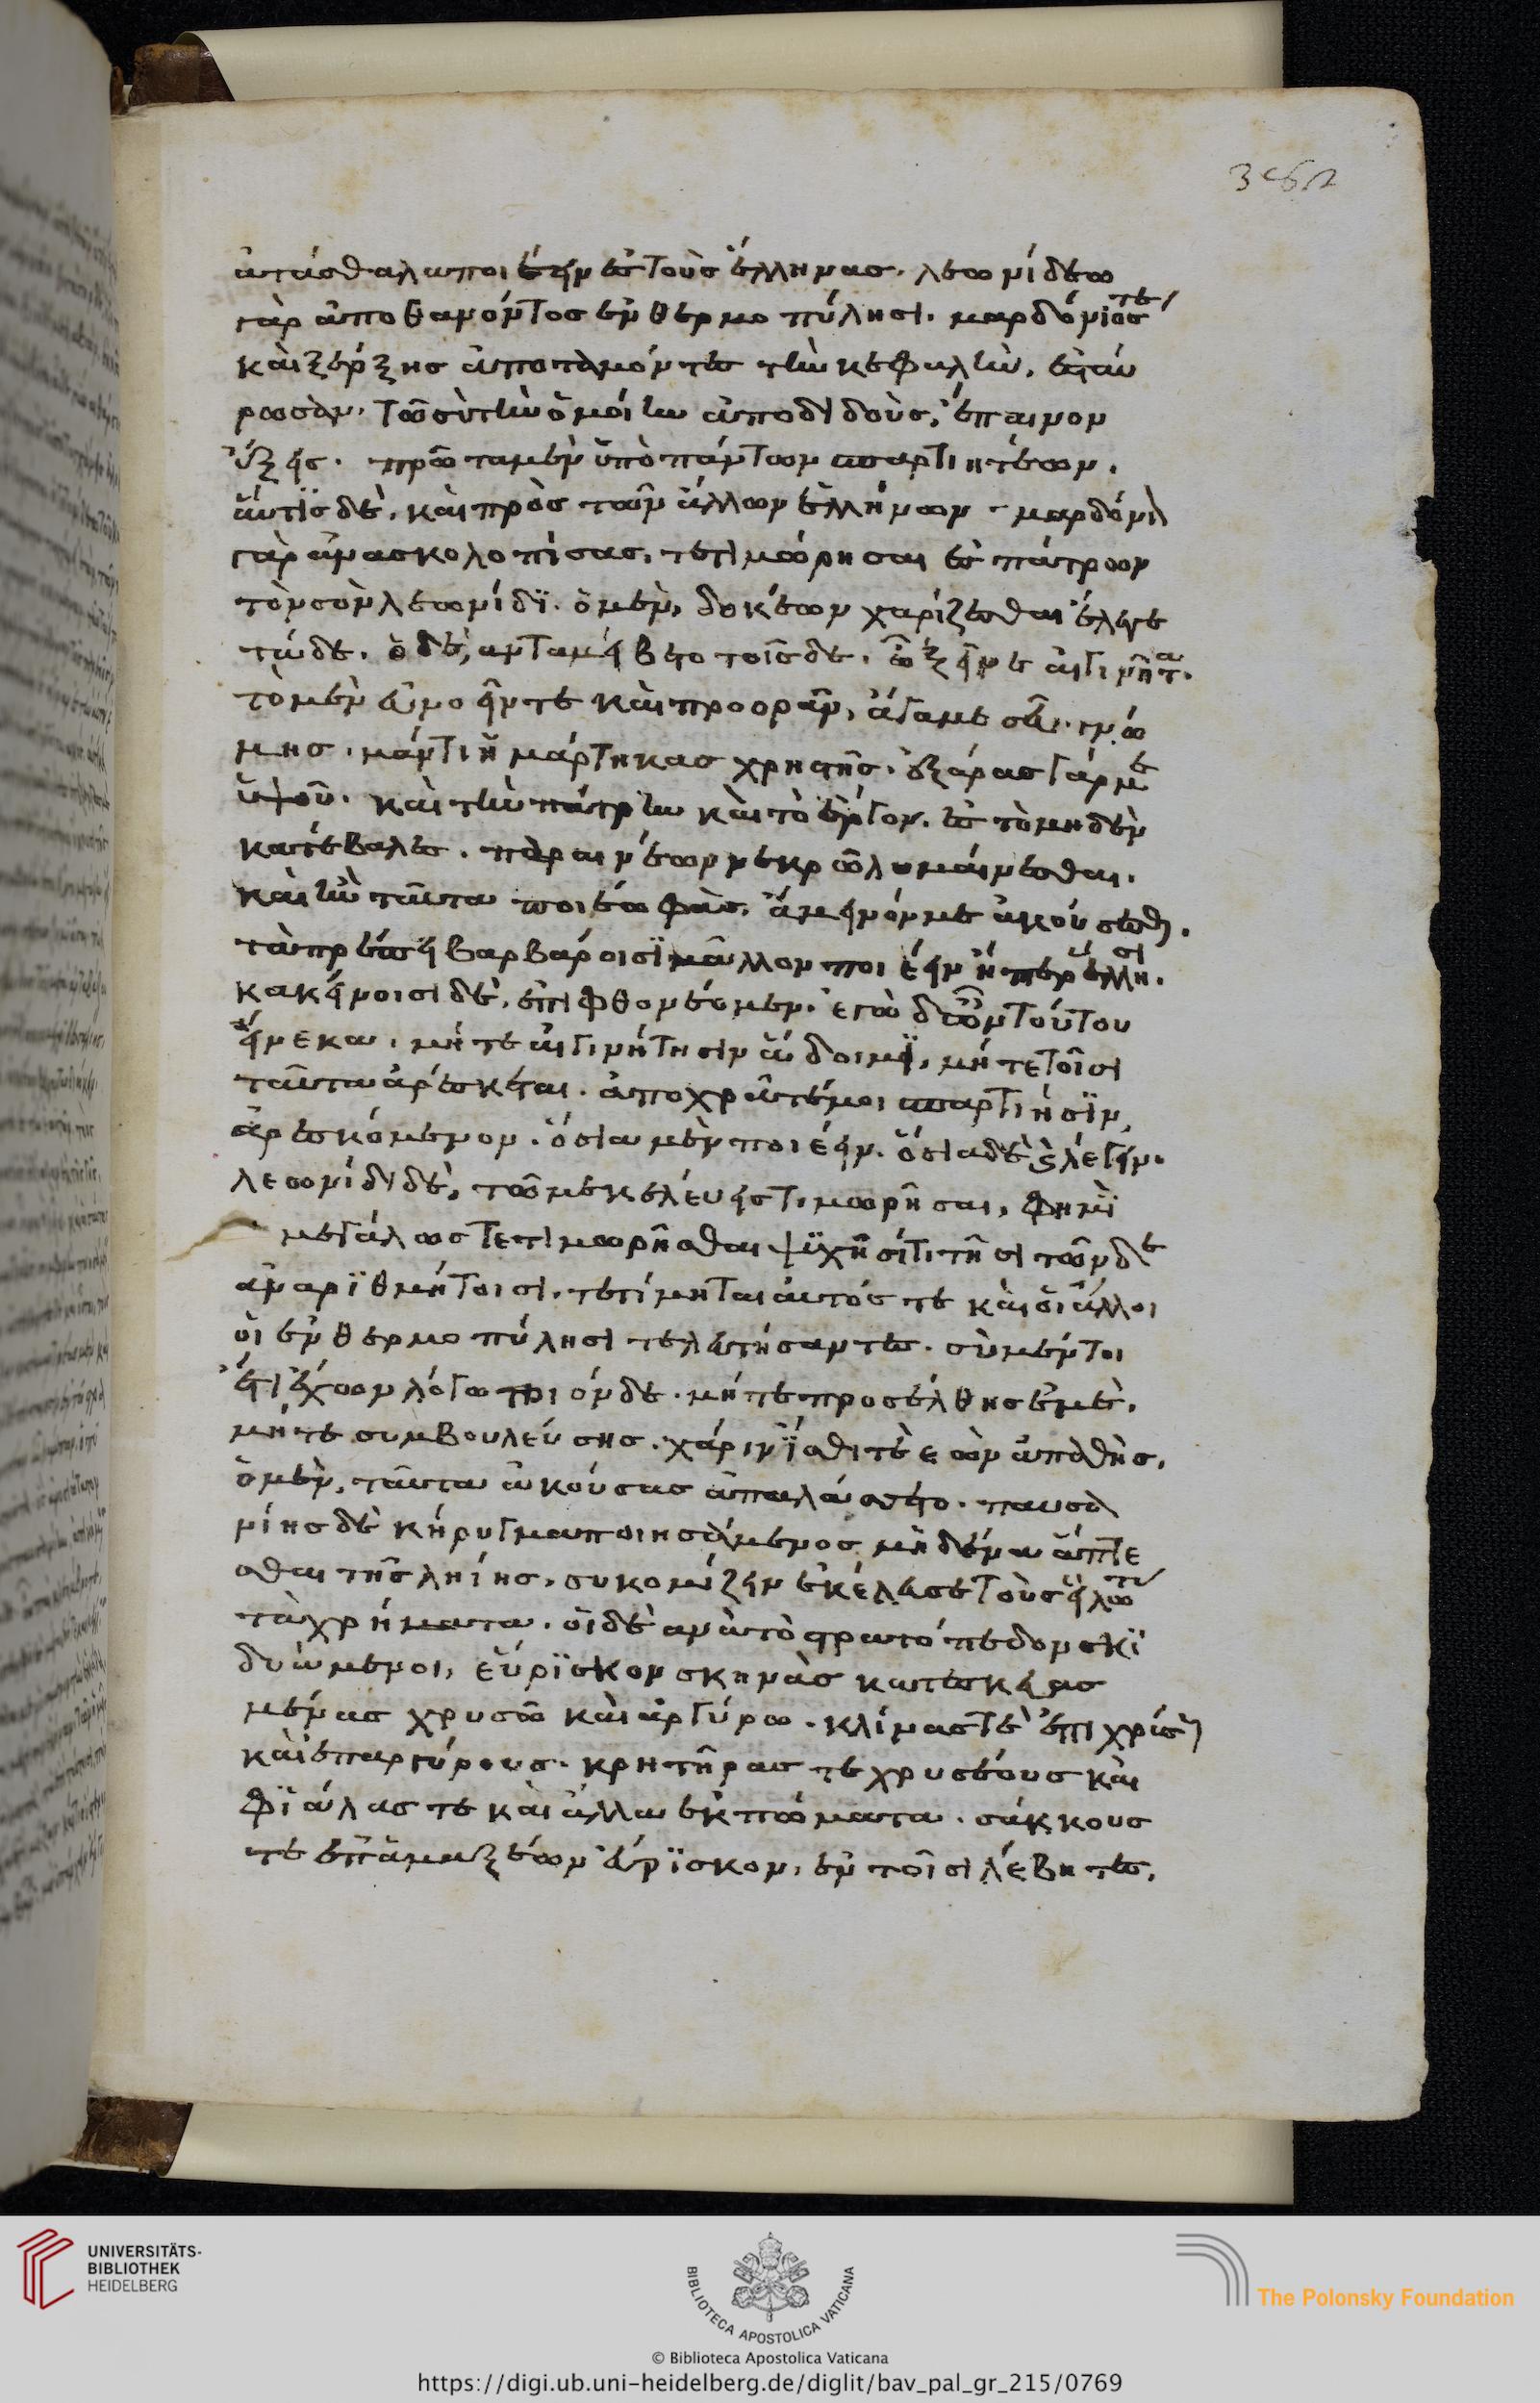 382
ἀτάσθαλα ποιέειν ἐς τοὺς ἕλληνας. λεωνίδεω
γὰρ ἀποθανόντος ἐν θερμοπύλησι. μαρδόνιός τε
καὶ ξέρξης ἀποταμόντες τὴν κεφαλὴν, ἐσταύ
ρωσαν. τῶ σὺ τὴν ὁμοίην ἀποδιδοὺς, ἔπαινον
ἕξεις. πρῶτα μὲν ὑπὸ πάντων σπαρτιητέων.
αὖτις δὲ, καὶ πρὸς τῶν ἄλλων ἑλλήνων. μαρδόνιον
γὰρ ἀνασκολοπίσας, τετιμώρησαι ἐς πάτρων
τὸν σὸν λεωνίδην. ὁ μὲν, δοκέων χαρίζεσθαι ἔλεγε
τάδε. ὁ δὲ, ἀνταμείβετο τοῖσδε. ὦ ξεῖνε αἰγινῆτα.
τὸ μὲν εὐνοεῖν τε καὶ προορᾶν, ἄγαμαί σευ. γνώ
μης. μάντι ἡμάρτηκας χρηστῆς. ἐξάρας γάρ με
ὑψοῦ. καὶ τὴν πάτρην καὶ τὸ ἔργον. ἐς τὸ μηδὲν
κατέβαλες. παραινέων νεκρῶ λυμαίνεσθαι.
καὶ ἢν ταῦτα ποιέω φὰς, ἄμεινόν με ἀκούσεσθαι.
τὰ πρέπει βαρβάροισι μᾶλλον ποιέειν ἤπερ ἕλλησι.
κακείνοισι δὲ, ἐπιφθονέομεν. ἐγὼ δ ὦν τούτου
εἵνεκα. μήτε αἰγινήτησιν ἅδοιμι, μήτε τοῖσι
ταῦτα ἀρέσκεται. ἀποχρᾶ τέ μοι σπαρτιήτησιν,
ἀρεσκόμενον. ὅσια μὲν ποιέειν. ὅσια δὲ καὶ λέγειν.
λεωνίδη δὲ, τῶ με κελεύεις τιμωρῆσαι, φημὶ
μεγάλως τετιμωρῆσθαι ψυχῆσί τε τῆσι τῶνδε
ἀναριθμήτοισι. τετίμηται αὐτός τε καὶ οἱ ἄλλοι
οἱ ἐν θερμοπύλησι τελευτήσαντες. σὺ μέντοι
ἔτι ἔχων λόγον τοιόνδε. μήτε προσέλθης ἐμὲ.
μήτε συμβουλεύσης. χάριν ἴσθι τε ἐὼν ἀπαθὴς.
ὁ μὲν, ταῦτα ἀκούσας ἀπαλάσσετο. παυσα
νίης δὲ κήρυγμα ποιησάμενος μηδένα ἅπτε
σθαι τῆς ληίης. συκομίζειν ἐκέλευσε τοὺς εἵλωτας
τὰ χρήματα. οἱ δὲ ἀνὰ τὸ στρατόπεδον σκι
δνάμενοι, εὕρισκον σκηνὰς κατεσκευασ
μένας χρυσῶ καὶ ἀργύρω. κλίνας τε ἐπιχρύσους
καὶ ἐπαργύρους. κρητῆρας τε χρυσέους καὶ
φιάλας τε καὶ ἄλλα ἐκπώματα. σάκκους
τε ἐπ ἀμαξέων εὕρισκον, ἐν τοῖσι λέβητες,
UNIVERSITÄTS-
BIBLIOTHEK
HEIDELBERG
BIBLIOTECA APOSTOLICA VATICANA
The Polonsky Foundation
© Biblioteca Apostolica Vaticana
https://digi.ub.uni-heidelberg.de/diglit/bav_pal_gr_215/0769